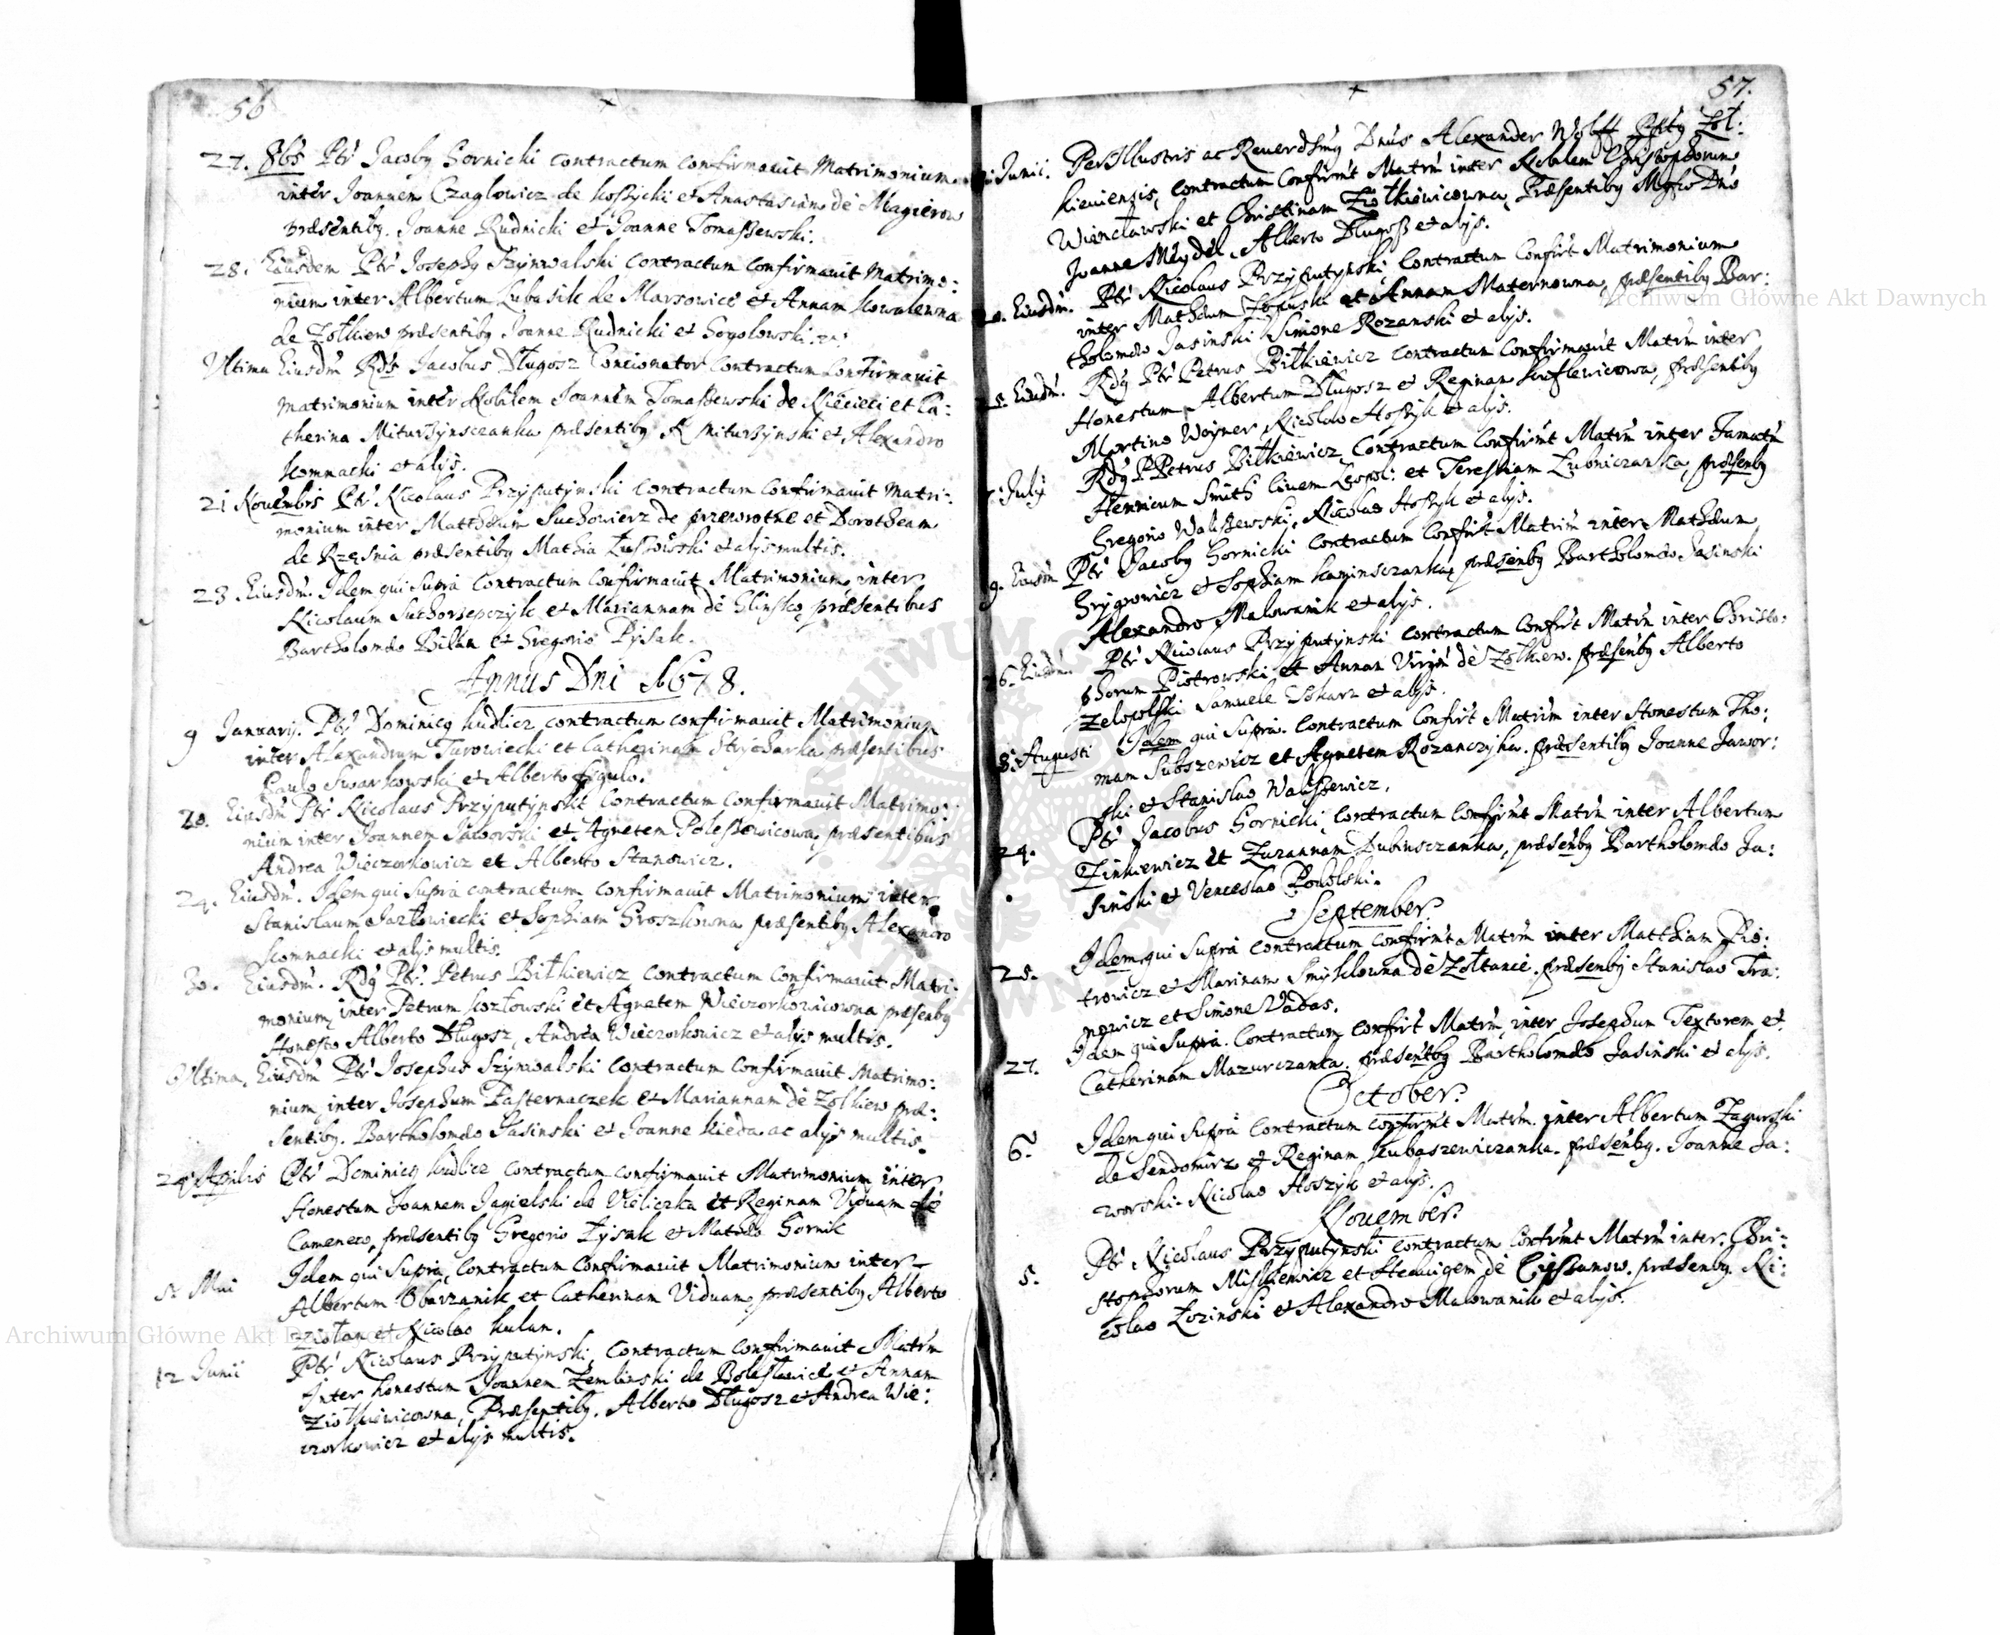 56
27. 8bs Ptr Jacoby Gornicki contractum confirmavit Matrimonium
inter Joannem Czaglowicz de Koszycki et Anastasiam de Magierow
præsentiby. Joanne Rudnicki et Joanne Tomaszewski.
28. Eiusdem Ptr Josephy Szynwalski contractum confirmavit Matrimo:
nium inter Albertum Lubasik de Marsowice et Annam Kowalewna
de Zolkiew præsentiby Joanne Rudnicki et Gogolowski.
Ultima Eiusdm Rds Jacobus Dlugosz Concionator Contractum Confirmavit
Matrimonium inter Nobilem Joannem Tomaszewski de Niecieci et Ca:
therina Miturzynsczanka præsentiby A Miturzynski et Alexandro
Komnacki et alys.
21 Novembris Ptr. Nicolaus Przyputynski contractum confirmavit Matri:
monium inter Mattheum Suchowierz de przewrotne et Dorotheam
de Rzęsnia præsentiby Mathia et alys multis.
23 Eiusdm. Idem qui supra contractum confirmavit Matrimonium inter
Nicolaum Suchorzepczyk et Mariannam de Glinsko præsentibus
Bartholomæo Bilan et Gregorio Pysak.
Annus Dni 1678.
9 Januarij. Ptr Dominicq Kudlicz contractum confirmavit Matrimonium
inter Alexandrum Turowiecki et Catherinam Strycharka præsentibus
Paulo Swarkowski et Alberto figulo.
20. Eiusdm Ptr Nicolaus Przyputynski Contractum Confirmavit Matrimo:
nium inter Joannem Jaworski et Agnetem Poleszewicowa præsentibus
Andrea Wieczorkowicz et Alberto Stanowicz.
24. Eiusdm. Idem qui supra contractum confirmavit Matrimonium inter
Stanislaum Jazlowiecki et Sophiam Groszkowna præsentiby Alexandro
Komnacki et alys multis.
30. Eiusdm. Rdq Ptr. Petrus Bitkiewicz contractum confirmavit Matri:
monium inter Petrum Kozlowski et Agnetem Wieczorkowicowna præsenby
Honesto Alberto Dlugosz, Andrea Wieczorkowicz et alys multis.
Ultima. Eiusdm Ptr Josephus Szynwalski contractum confirmavit Matrimo:
nium inter Josephum Pasternaczek et Mariannam de Zolkiew præ:
sentiby. Bartholomæo Jasinski et Joanne Kieda ac alys multis.
24 Aprilis Ptr Dominicq Kudlicz contractum confirmavit Matrimonium inter
Honestum Joannem Jagielski de Vieliczka et Reginam Viduam de
Cameneco, præsentiby Gregorio Pysak et Mathæo Gornik
5. Mai Idem qui supra Contractum Confirmavit Matrimonium inter
Albertum Obarzanik et Catherinam Viduam, præsentiby Alberto
Ziolan et Nicolao Kulan.
12 Junii Ptr Nicolaus Przyputynski Contractum Confirmavit Matrm
Inter honestum Joannem Zemlinski de Boleslawice et Annam
Ziolkiewicowna, Præsentiby. Alberto Dlugosz et Andrea Wie:
czorkowicz et alys multis.
57.
Junii. PerIllustris ac Reuerdsmq Dnus Alexander Wolff Zol:
kieviensis, contractum Confirmt Matrm inter Nobilem Christophorum
Wienclawski et Christinam Ziolkiewicowna, Præsentiby Mgfco Dno
Joanne Meydel, Alberto Dlugosz et alys.
Eiusdm. Ptr Nicolaus Przyputynski Contractum Confirt Matrimonium
inter Mathæum et Annam Maternowna, præsentiby Bar:
tholomæo Jasinski Simone Rozanski et alys.
Eiusdm. Rdq Ptr Petrus Bitkiewicz contractum confirmavit Matrm inter
Honestum, Albertum Dlugosz et Reginam Kuflewicowa, præsentiby
Martino Woyner Nicolao Hoszyk et alys.
July Rdq P Petrus Bitkiewicz Contractum Confirmt Matrm inter Famatm
Henricum Smith Civem Leopol: et Teressiam Lubniczanka, præsenby
Gregorio Waliszewski, Nicolao Hoszyk et alys.
9. Eiusdm Ptr Jacoby Gornicki contractum Confirt Matrim inter Mathæum
Grygrowicz et Sophiam Kaminsczanka, præsenby Bartholomæo Jasinski
Alexandro Malowanik et alys.
Eiusdm. Ptr Nicolaus Przyputynski contractum Confirt Matrm inter Christo:
phorum Piotrowski et Annam Virgm de Zolkiew. præsenby Alberto
Zelopolski Samuele et alys.
8. Augusti Idem qui supra. Contractum Confirt Matrim inter Honestum Tho:
mam Subszewicz et Agnetem Rozanczyka. præsentiby Joanne Jawor:
ski et Stanislao Waliszewicz.
24. Ptr Jacobus Gornicki, contractum Confirmt Matrm inter Albertum
Zinkiewicz et Zuzannam Dubinsczanka, præsenby Bartholomæo Ja:
sinski et Venceslao Podolski.
September.
25. Idem qui supra contractum confirmt Matrm inter Matthiam Pio:
trowicz et Marinam Smyklowna de Zoltance. præsenby Stanislao Tra:
mpwicz et Simone Vadas.
27. Idem qui supra. Contractum Confirt Matrm inter Josephum Textorem et
Catherinam Mazurczanka. præsentby Bartholomæo Jasinski et alys.
October.
6. Idem qui supra Contractum confirmt Matrm. inter Albertum Zagurski
de Sendomirz et Reginam Lubaszewiczanka. præsenby. Joanne Ja:
worski. Nicolao Hoszyk et alys.
November.
5. Ptr Nicolaus Przyputynski contractum confirmt Matrm inter. Chri:
stophorum Miskiewicz et Hedvigem de Cieszanow. præsenby. Ni:
colao Lozinski et Alexandro Malowanik et alys.
Archiwum Główne Akt Dawnych
Archiwum Główne Akt Dawnych